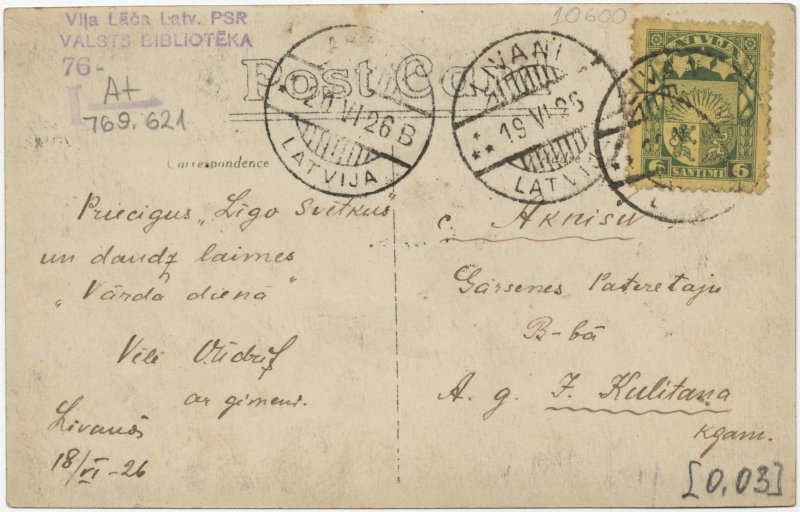 Viļa Lāča Latv. PSR
VALSTS BIBLIOTĒKA
76-
A+
769.621
10600
Post Ca
LATVIJA
6 SANTIMI 6
VI 26 B
LATVIJA
LIVANI
19 VI 26
Correspondence
Priecigus „Līgo Svetkus"
un daudz laimes
„Vārda dienā"
Vēlē
ar ģimeni.
Livanos
18/VI-26
c. Aknisu
Gārsenes Pateretaju
B-bā
A. g. J. Kulitana
kgam.
[0,03]